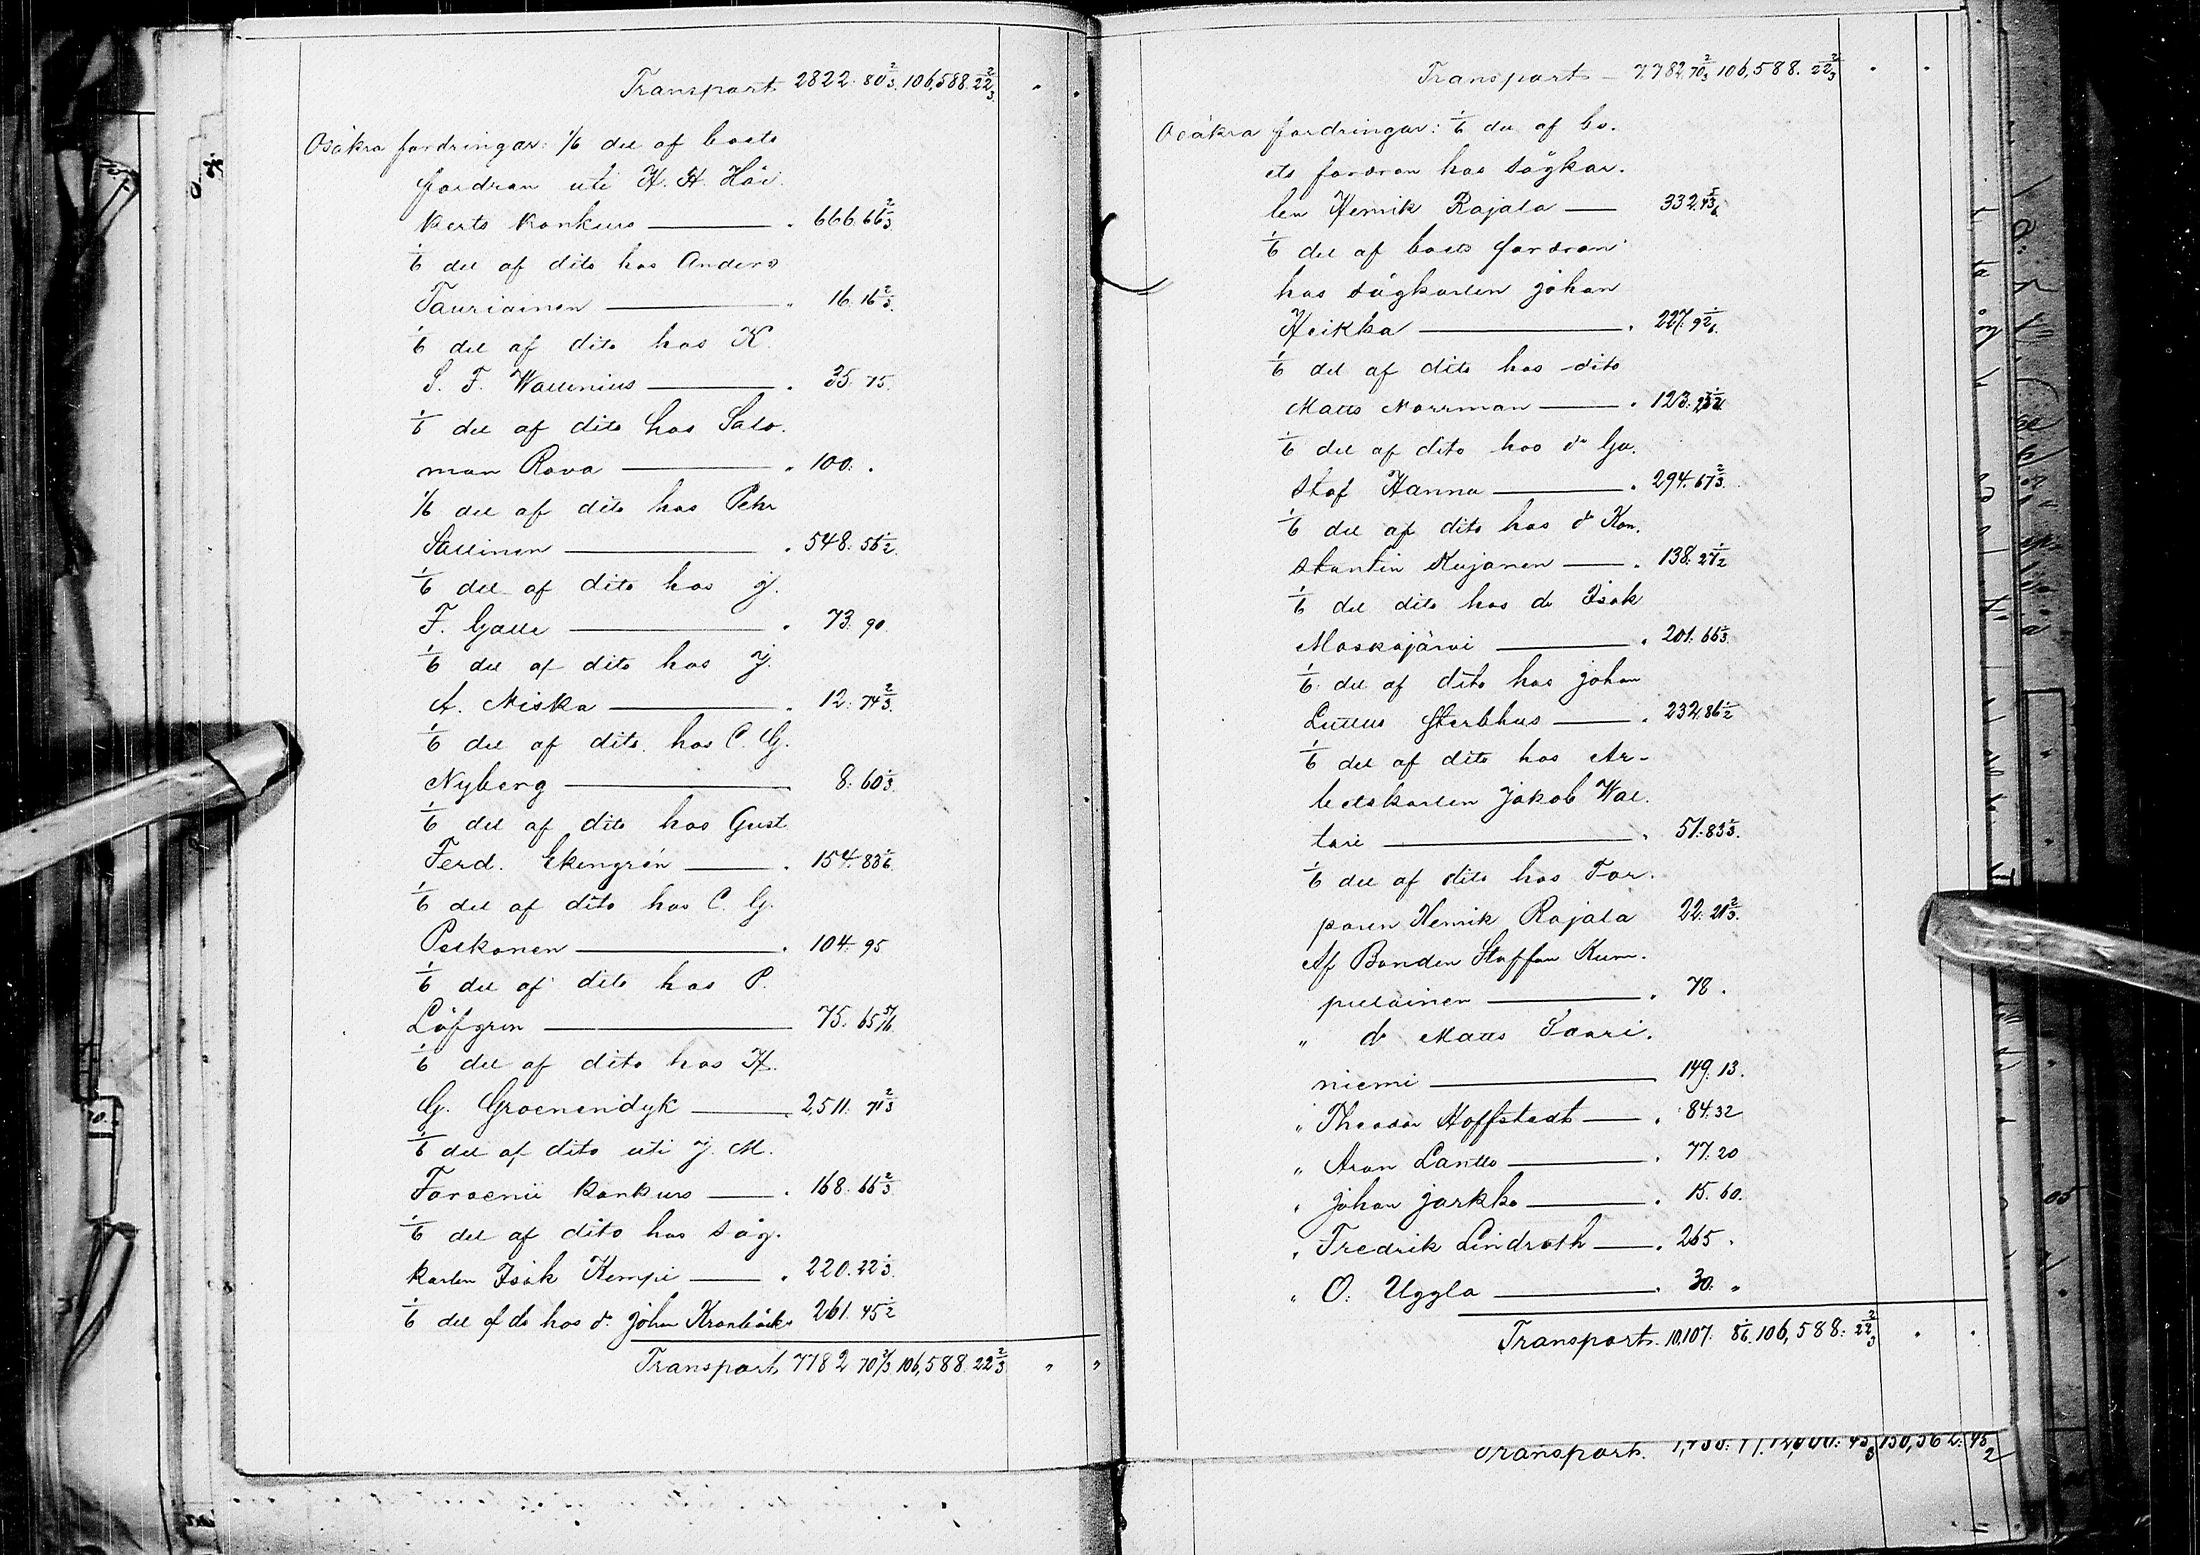 Transport 2822. 80 2/3. 106,588. 22 2/3.
Osäkra fordringar: 1/6 del af boets
fordran uti H. H. Häi-
kerts konkurs — . 666. 66 2/3
1/6 del af dito hos Anders
Tauriainen — . 16. 16 2/3.
1/6 del af dito hos K.
S. F. Wallenius — . 35. 75.
1/6 del af dito hos Salo-
mon Rova — . 100. .
1/6 del af dito hos Pehr
Sallinen — . 548. 56 1/2.
1/6 del af dito hos J.
F. Galle — . 73. 90.
1/6 del af dito hos J.
A. Niska — . 12. 74 2/3.
1/6 del af dito hos C. G.
Nyberg — 8. 60 1/3.
1/6 del af dito hos Gust.
Ferd. Ekengrén — . 154. 83 1/6.
1/6 del af dito hos C. G.
Peckonen — . 104. 95
1/6 del af dito hos P.
Löfgren — 75. 65 5/16.
1/6 del af dito hos H.
G. Groenendyk — 2511. 71 2/3
1/6 del af dito uti J. M.
Toroenii konkurs — . 168. 66 2/3.
1/6 del af dito hos såg-
karlen Isak Kempi — . 220. 22 1/3.
1/6 del af do hos do Johan Krankäcks 261. 45 1/2
Transport 7782 70 2/3. 106,588. 22 2/3 " "
Transport — 7782. 70 2/3 106,588. 22 2/3 . .
Osäkra fordringar: 1/6 del af bo-
ets fordran hos sågkar-
len Henrik Rajala — 332. 43 5/6.
1/6 del af boets fordran
hos sågkarlen Johan
Heikka — . 227. 92 1/6.
1/6 del af dito hos dito
Matts Norrman — . 123.
1/6 del af dito hos do Gu-
staf Hannu — . 294. 67 2/3.
1/6 del af dito hos do Kon-
stantin Kujanen — . 138. 27 1/2
1/6 del dito hos do Isak
Moskojärvi — . 201. 66 1/3.
1/6 del af dito hos Johan
Luttus Sterbhus — . 232. 86 1/2
1/6 del af dito hos Ar-
betskarlen Jakob Wal-
tari — . 51. 83 1/3.
1/6 del af dito hos Tor-
paren Henrik Rajala 22. 21 2/3.
Af Bonden Staffan Kum-
pulainen — . 78 .
" do Matts Saari-
niemi — 149. 13.
" Theodor Hoffstedt — . 84. 32
" Aron Lantto — . 77. 20
" Johan Jarkko — . 15. 60.
" Fredrik Lindroth — . 265 .
" O. Uggla — . 30. "
Transport. 10,107. 8 1/6. 106,588. 22 2/3 . .
Transport.